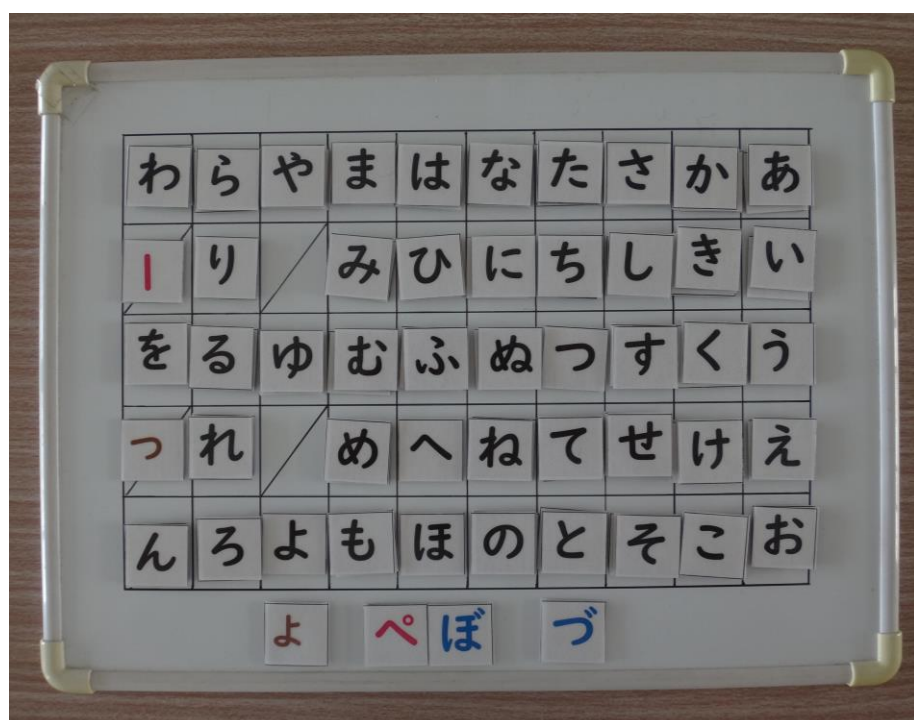 わ ら や ま は な た さ か あ
ー り み ひ に ち し き い
を る ゆ む ふ ぬ つ す く う
っ れ め へ ね て せ け え
ん ろ よ も ほ の と そ こ お
ょ ぺ ぼ づ